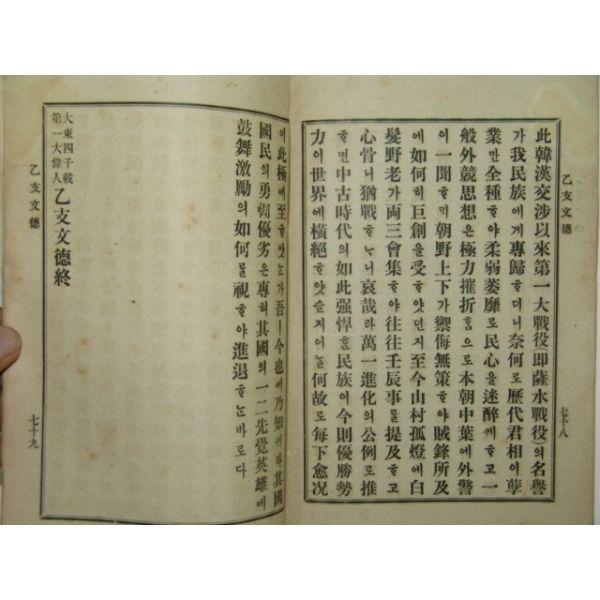 乙支文德
此韓漢交涉以來第一大戰役(即薩水戰役)의名譽
가我民族에게專歸ᄒᆞ더니奈何로歷代君相이孼
業만全種ᄒᆞ야柔弱萎靡로民心을迷醉케ᄒᆞ고一
般外競思想은極力摧折ᄒᆞᆷ으로本朝中葉에外警
이一聞ᄒᆞᄆᆡ朝野上下가禦侮無策ᄒᆞ야賊鋒所及
에如何ᄒᆞᆫ巨創을受ᄒᆞ얏던지至今山村孤燈에白
髮野老가両三會集ᄒᆞ야往往壬辰事ᄅᆞᆯ提及ᄒᆞ고
心骨이猶戰ᄒᆞᄂᆞ니哀哉라萬一進化의公例로推
ᄒᆞ면中古時代의如此强悍ᄒᆞᆫ民族이今則優勝勢
力이世界에橫絕ᄒᆞ얏슬지어ᄂᆞᆯ何故로每下愈况
七十八
이此極에至ᄒᆞ얏ᄂᆞᆫ가吾ㅣ今也에乃知이라其國
國民의勇㥘優劣은專혀其國의一二先覺英雄에
鼓舞激勵의如何ᄅᆞᆯ視ᄒᆞ야進退ᄒᆞᄂᆞᆫ바로다
大東四千載
第一大偉人
乙支文德終
乙支文德
七十九